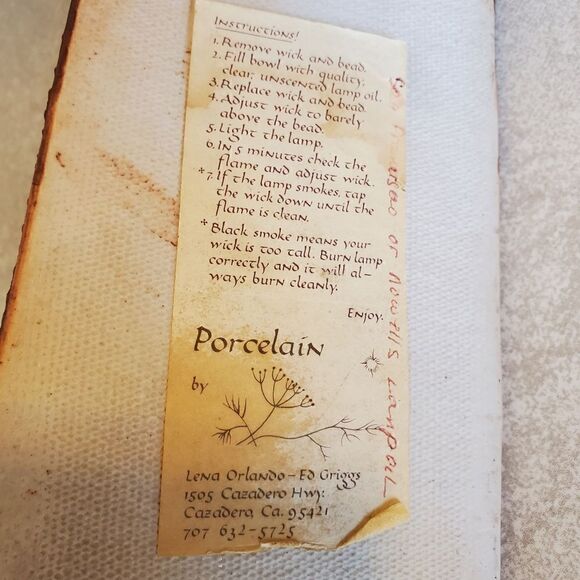 Instructions!
1. Remove wick and bead.
2. Fill bowl with quality,
clear, unscented lamp oil.
3. Replace wick and bead
4. Adjust wick to barely
above the bead.
5. Light the lamp.
6. In 5 minutes check the
flame and adjust wick.
*7. If the lamp smokes, tap
the wick down until the
flame is clean.
* Black smoke means your
wick is too tall. Burn lamp
correctly and it will al-
ways burn cleanly.
Enjoy.
Porcelain
by
Lena Orlando - Ed Griggs
1505 Cazadero Hwy.
Cazadero, Ca. 95421
707 632-5725
or Nowells Lamp oil